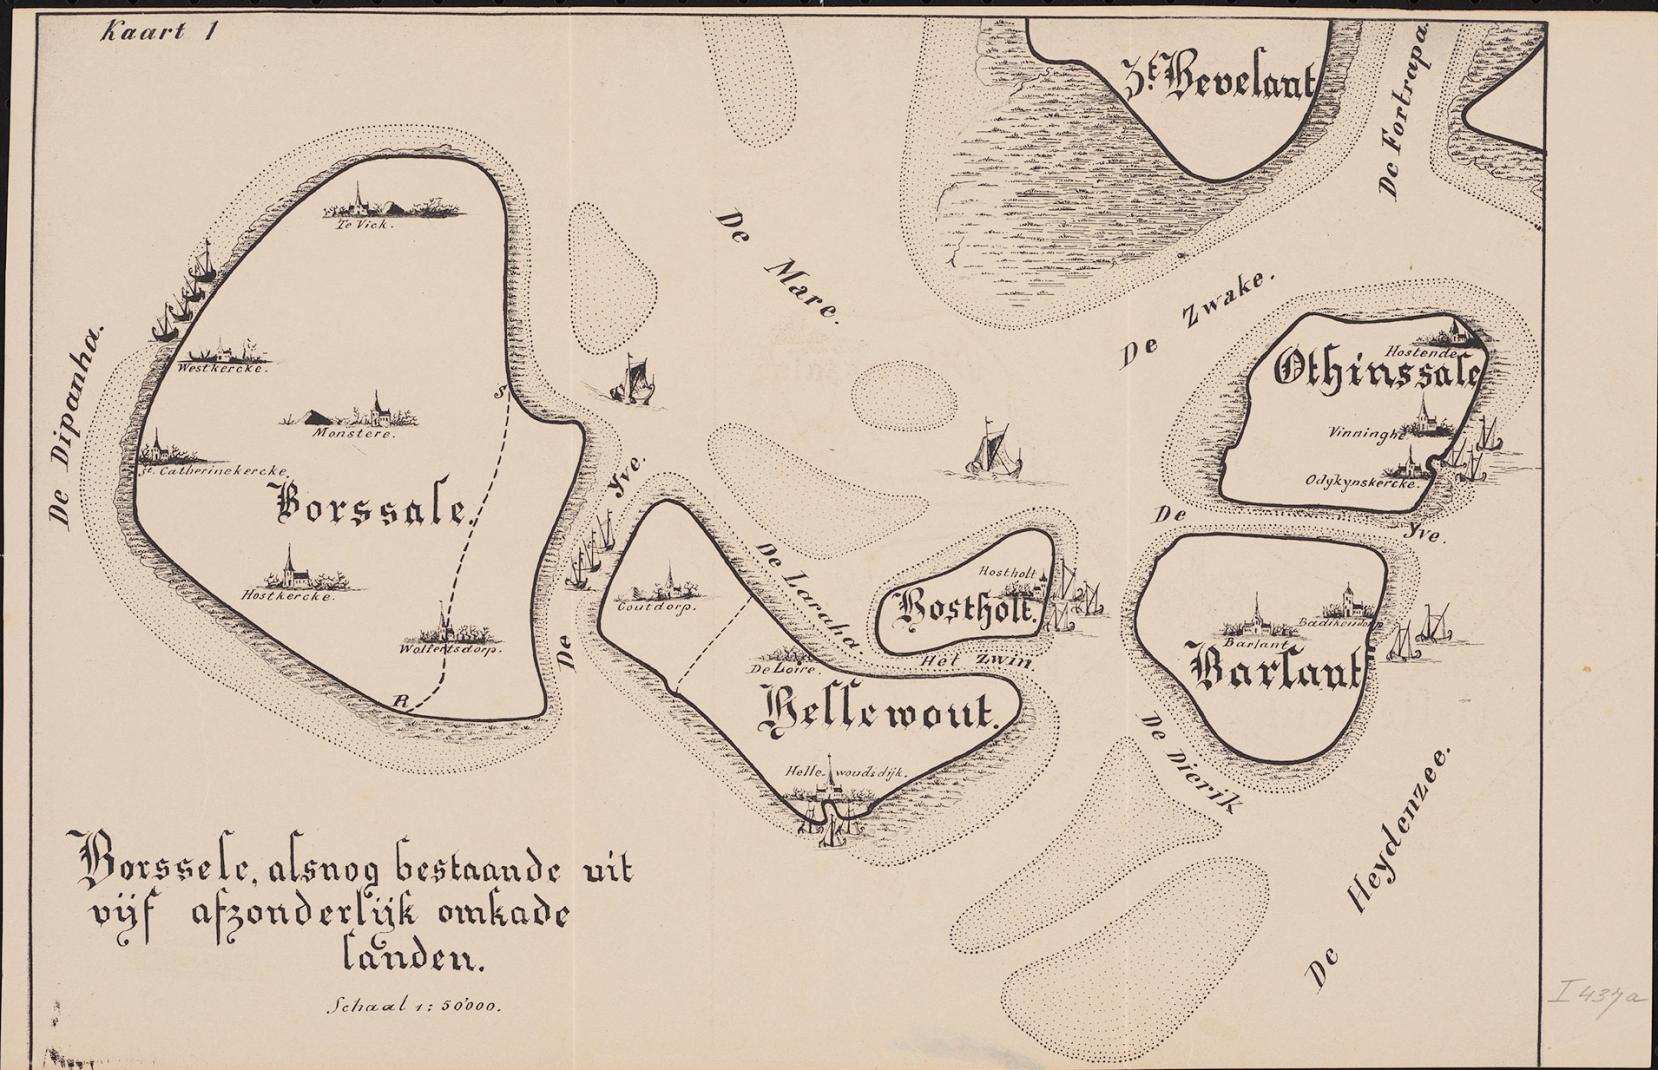 Kaart 1
Zt. Bevelant
De Fortrapa.
Te Vick.
De Mare.
De Zwake.
De Dipanha.
Westkercke.
Monstere.
St. Catherinekercke.
Borssale.
S
Hostkercke.
Wolfertsdorp.
R
De Yve.
Coutdorp.
De Laraha.
De Loire.
Hellewout.
Hellewoudsdijk.
Hostholt
Oostholt.
Het Zwin
Hostende
Othinssale
Vinninghe
Odykynskercke.
De Yve.
Badikendorp
Barlant
Barlant
De Dierik
De Heydenzee.
Borssele, alsnog bestaande uit
vijf afzonderlijk omkade
landen.
Schaal 1:50'000.
I 437a